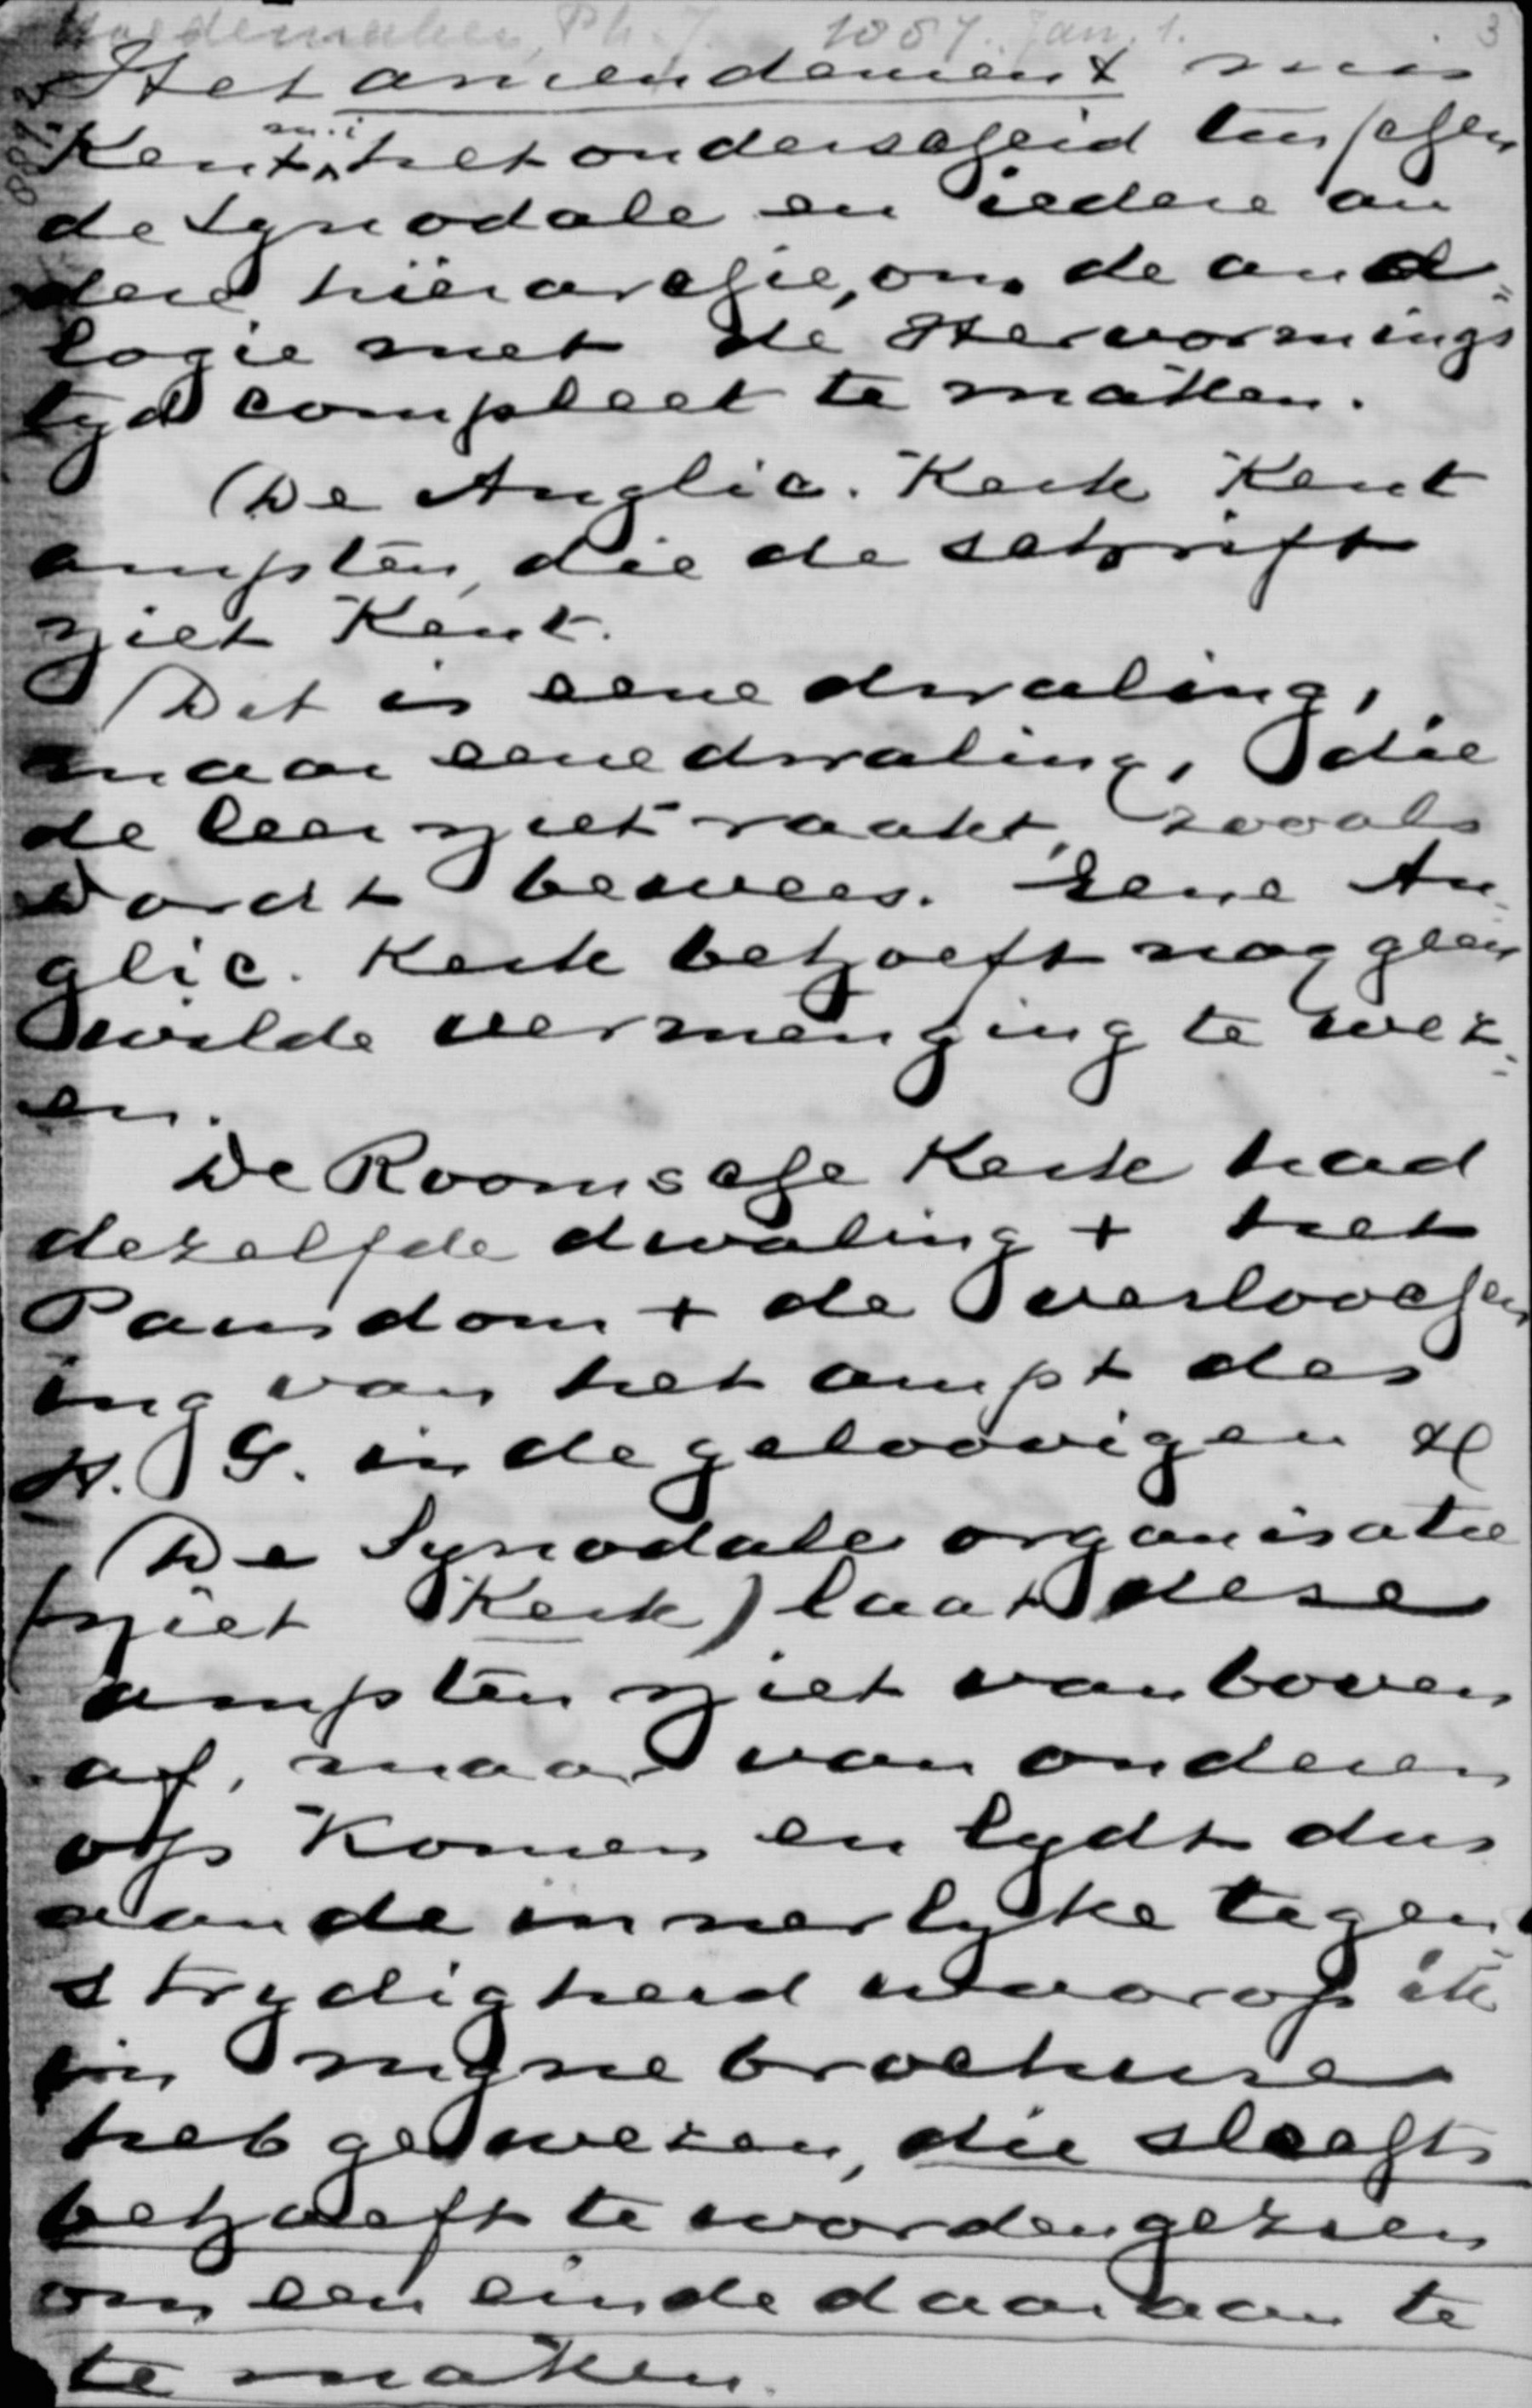 Hoedemaker, Ph. J. 1887. Jan. 1. 3
Het amendement mis
Kent m.i. het onderscheid tusschen
de Synodale en iedere an
dere hiërarchie, om de ana=
logie met de Hervormings
tyd compleet te maken.
De Anglic. Kerk Kent
ampten, die de schrift
niet Kent.
Dit is eene dwaling,
maar eene dwaling, die
de leer niet raakt, zooals
Dordt bewees. Eene An
glic. Kerk behoeft nog geen
wilde vermenging te wez=
en.
De Roomsche Kerk had
dezelfde dwaling + het
Pausdom + de verlooche
ing van het ampt des
H. G. in de geloovigen &
De Synodale organisatie
(niet Kerk) laat deze
ampten niet van boven
af, maar van onderen
op Komen en lydt dus
aan de innerlyke tegen
strydigheid waarop ik
in myne brochure
heb gewezen, die slechts
behoeft te worden gezien
om een einde daaraan te
te maken.